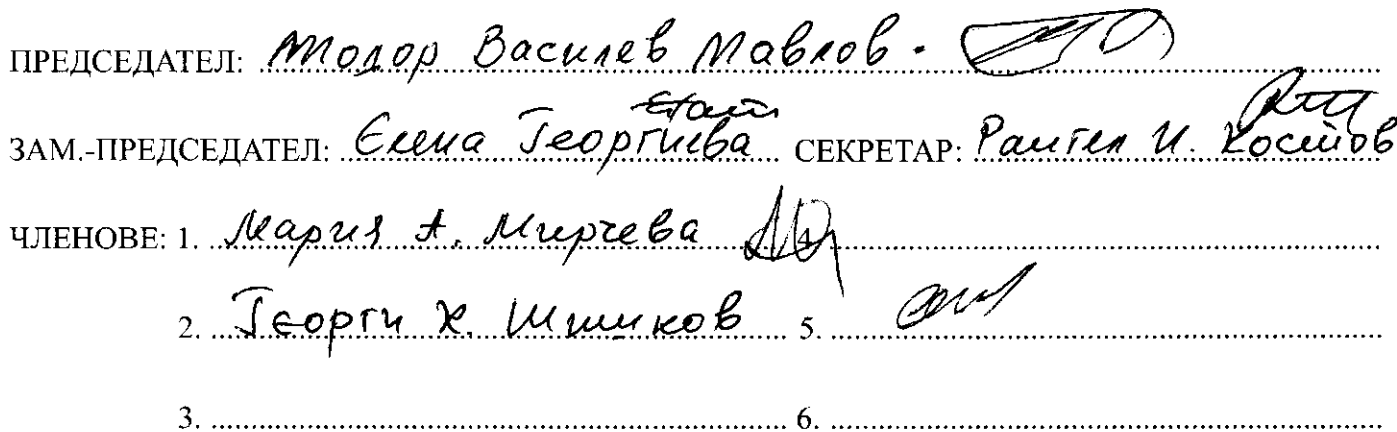 ПРЕДСЕДАТЕЛ: Тодор Василев Мавлов
ЗАМ.-ПРЕДСЕДАТЕЛ: Елена Георгиева СЕКРЕТАР: И. Костов
ЧЛЕНОВЕ: 1. Мария А. Мирчева
2. Георги Х. Шишков 5.
3. 6.